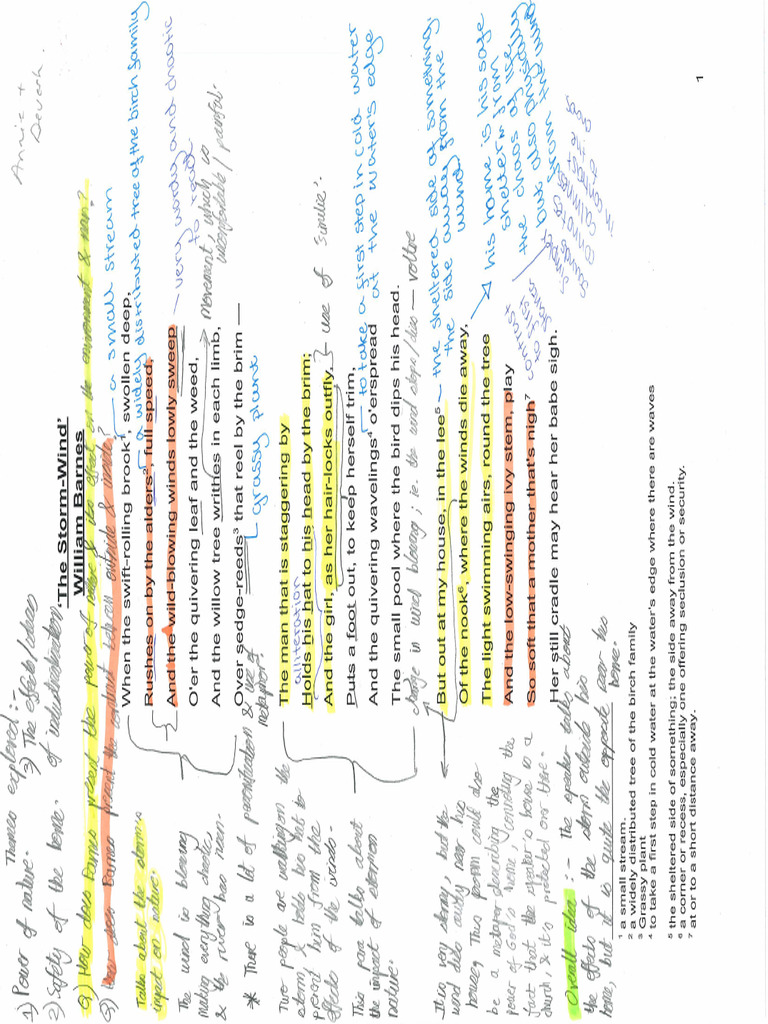 Annie +
Devesh
Themes explored:-
1) Power of nature.
2) Safety of the home.
3) The effects/ideas
of industrialisation
'The Storm-Wind'
William Barnes
Q) How does Barnes present the power of nature & its effect on the environment & man?
Q) How does Barnes present the contrast between outside & inside?
When the swift-rolling brook¹, swollen deep,
a small stream
Rushes on by the alders², full speed,
a widely distributed tree of the birch family
And the wild-blowing winds lowly sweep
very wordy and chaotic
to read
O'er the quivering leaf and the weed,
And the willow tree writhes in each limb,
movement, which is
uncomfortable / painful.
Over sedge-reeds³ that reel by the brim —
grassy plant
Talks about the storm's
impact on nature.
The wind is blowing
making everything
& the river has risen.
* There is a lot of personification & use of
metaphors
The man that is staggering by
alliteration
Holds his hat to his head by the brim;
And the girl, as her hair-locks outfly,
use of similie.
Puts a foot out, to keep herself trim,
And the quivering wavelings⁴ o'erspread
to take a first step in cold water
at the water's edge
The small pool where the bird dips his head.
Two people are walking in the
storm, & holds his hat to
the
effects of the winds.
This para talks about
the impact on
nature.
change in wind blowing; ie. the wind stops/dies — voltre
But out at my house, in the lee⁵
the sheltered side of something,
the side away from the
wind
Of the nook⁶, where the winds die away,
his home is his safe
shelter from
the chaos of life
but also physically
from the wind
The light swimming airs, round the tree
And the low-swinging ivy stem, play
contrast
to first
stanza
simple
sounds
connotes
calmness
in contrast
to the
chaos
So soft that a mother that's nigh⁷
Her still cradle may hear her babe sigh.
It is very stormy, but the
wind dies away near his
house. This person could also
be a metaphor describing the
power of God's home, considering the
fact that the speaker's house is a
church, & it's protected over there.
Overall idea :- The speaker talks about
the effects of the storm outside his
home, but it is quite the opposite near his
home.
¹ a small stream.
² a widely distributed tree of the birch family
³ Grassy plant
⁴ to take a first step in cold water at the water's edge where there are waves
⁵ the sheltered side of something; the side away from the wind.
⁶ a corner or recess, especially one offering seclusion or security.
⁷ at or to a short distance away.
1